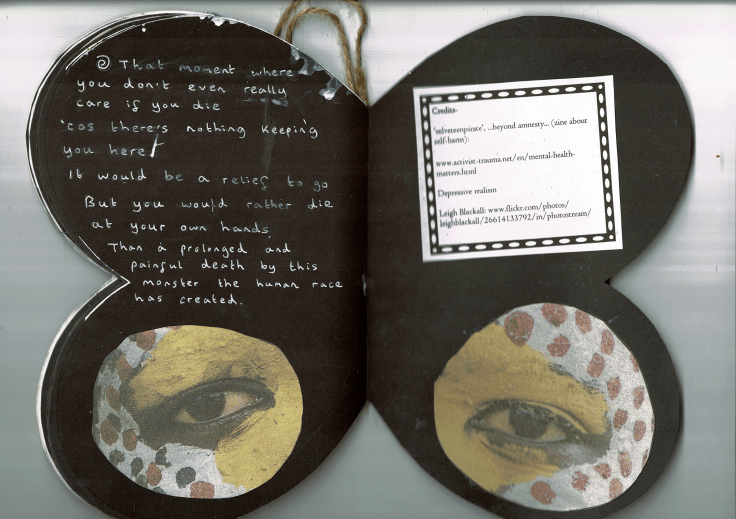 That moment where
you don't even really
care if you die
'cos there's nothing keeping
you here
It would be a relief to go
But you would rather die
at your own hands
Than a prolonged and
painful death by this
monster the human race
has created.
Credits-
'velveteenpirate', ...beyond amnesty... (zine about
self-harm):
www.activist-trauma.net/en/mental-health-
matters.html
Depressive realism
Leigh Blackall: www.flickr.com/photos/
leighblackall/26614133792/in/photostream/